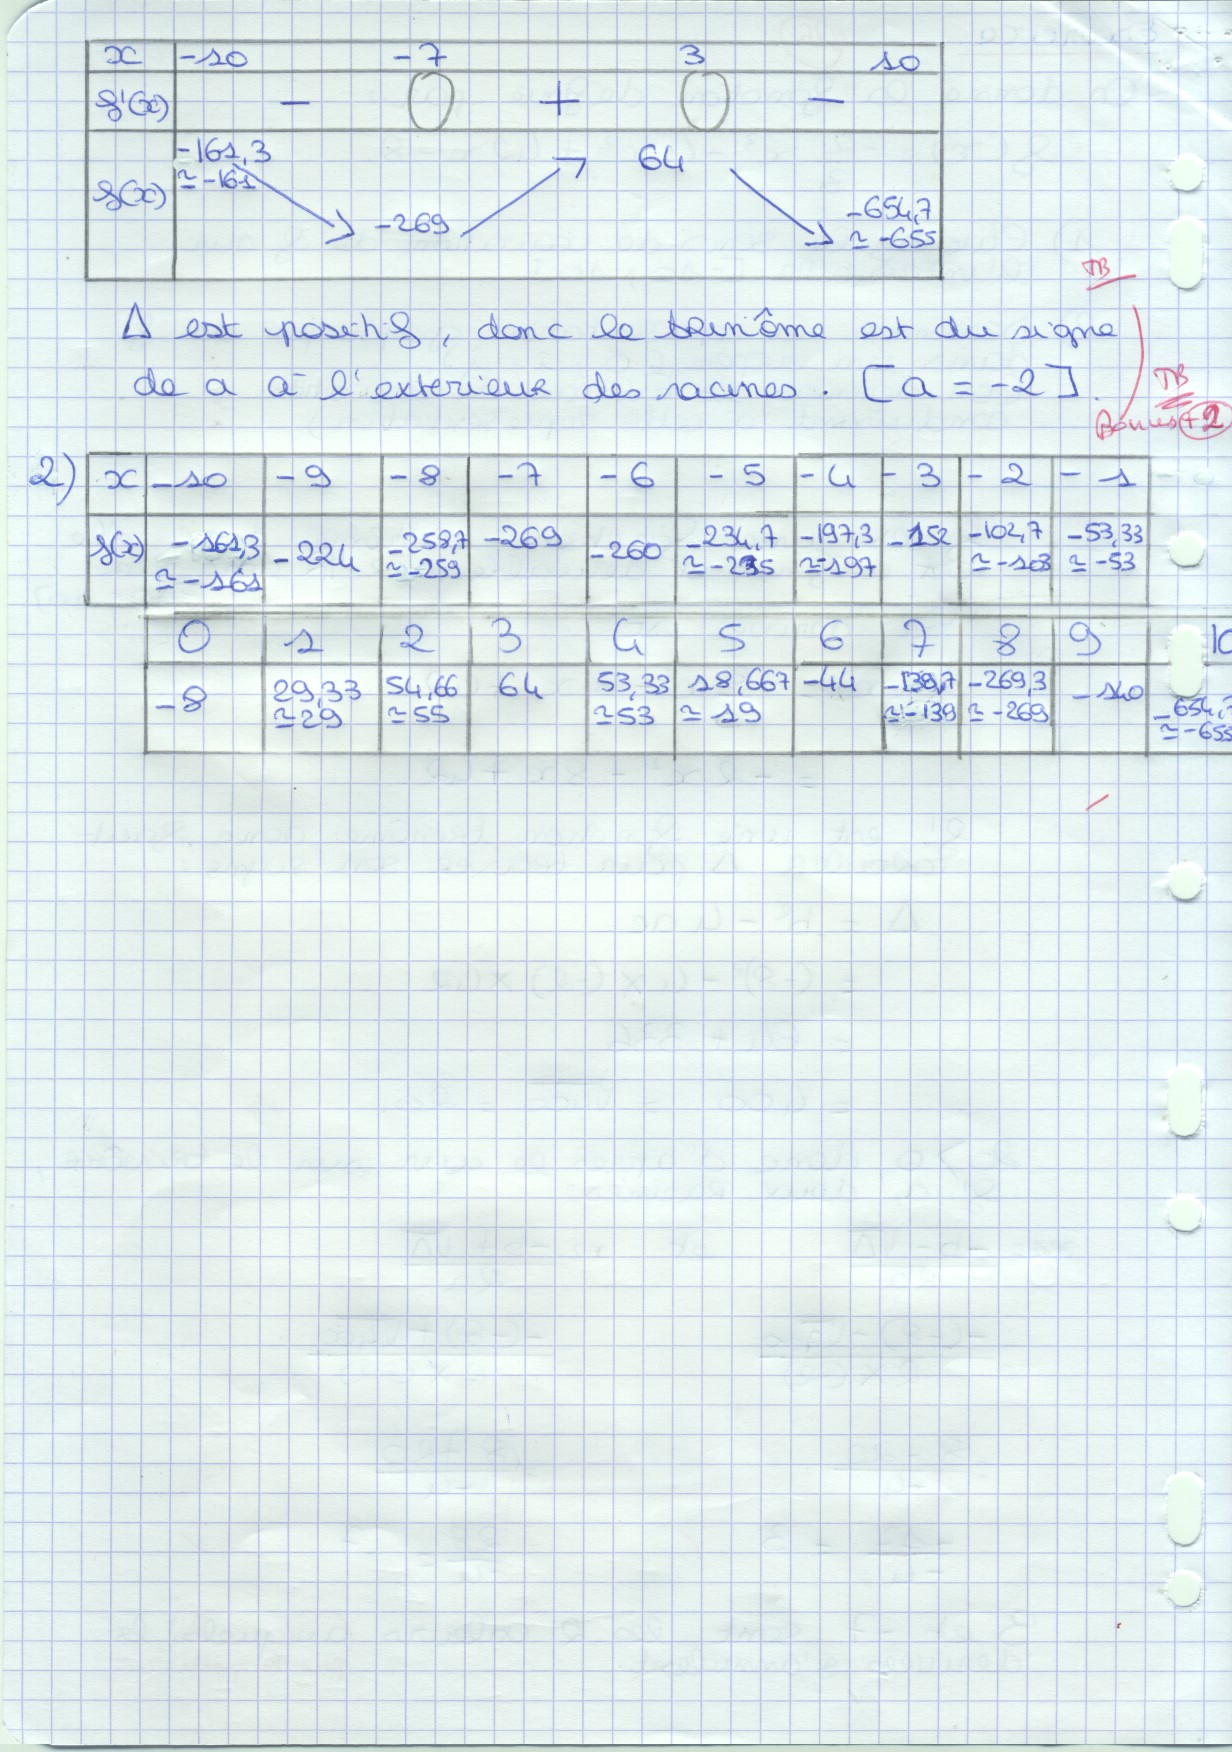 x -10 -7 3 10
f'(x) - 0 + 0 -
-161,3 64
≃ -161
f(x) -269 -654,7
≃ -655
TB
Δ est positif, donc le trinôme est du signe
de a à l'exterieur des racines. [a = -2].
TB
Bonus +2
2) x -10 -9 -8 -7 -6 -5 -4 -3 -2 -1
f(x) -161,3 -224 -258,7 -269 -260 -234,7 -197,3 -152 -102,7 -53,33
≃ -161 ≃ -259 ≃ -235 ≃ -197 ≃ -103 ≃ -53
0 1 2 3 4 5 6 7 8 9 10
-8 29,33 54,66 64 53,33 18,667 -44 -138,7 -269,3 -140 -654,7
≃ 29 ≃ 55 ≃ 53 ≃ 19 ≃ -139 ≃ -269 ≃ -655